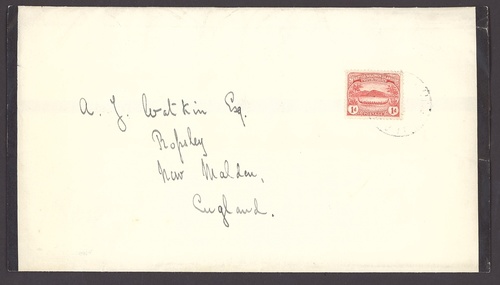 A. J. Watkin Esq.
Ropsley
New Malden,
England.
1d 1d
POSTAGE